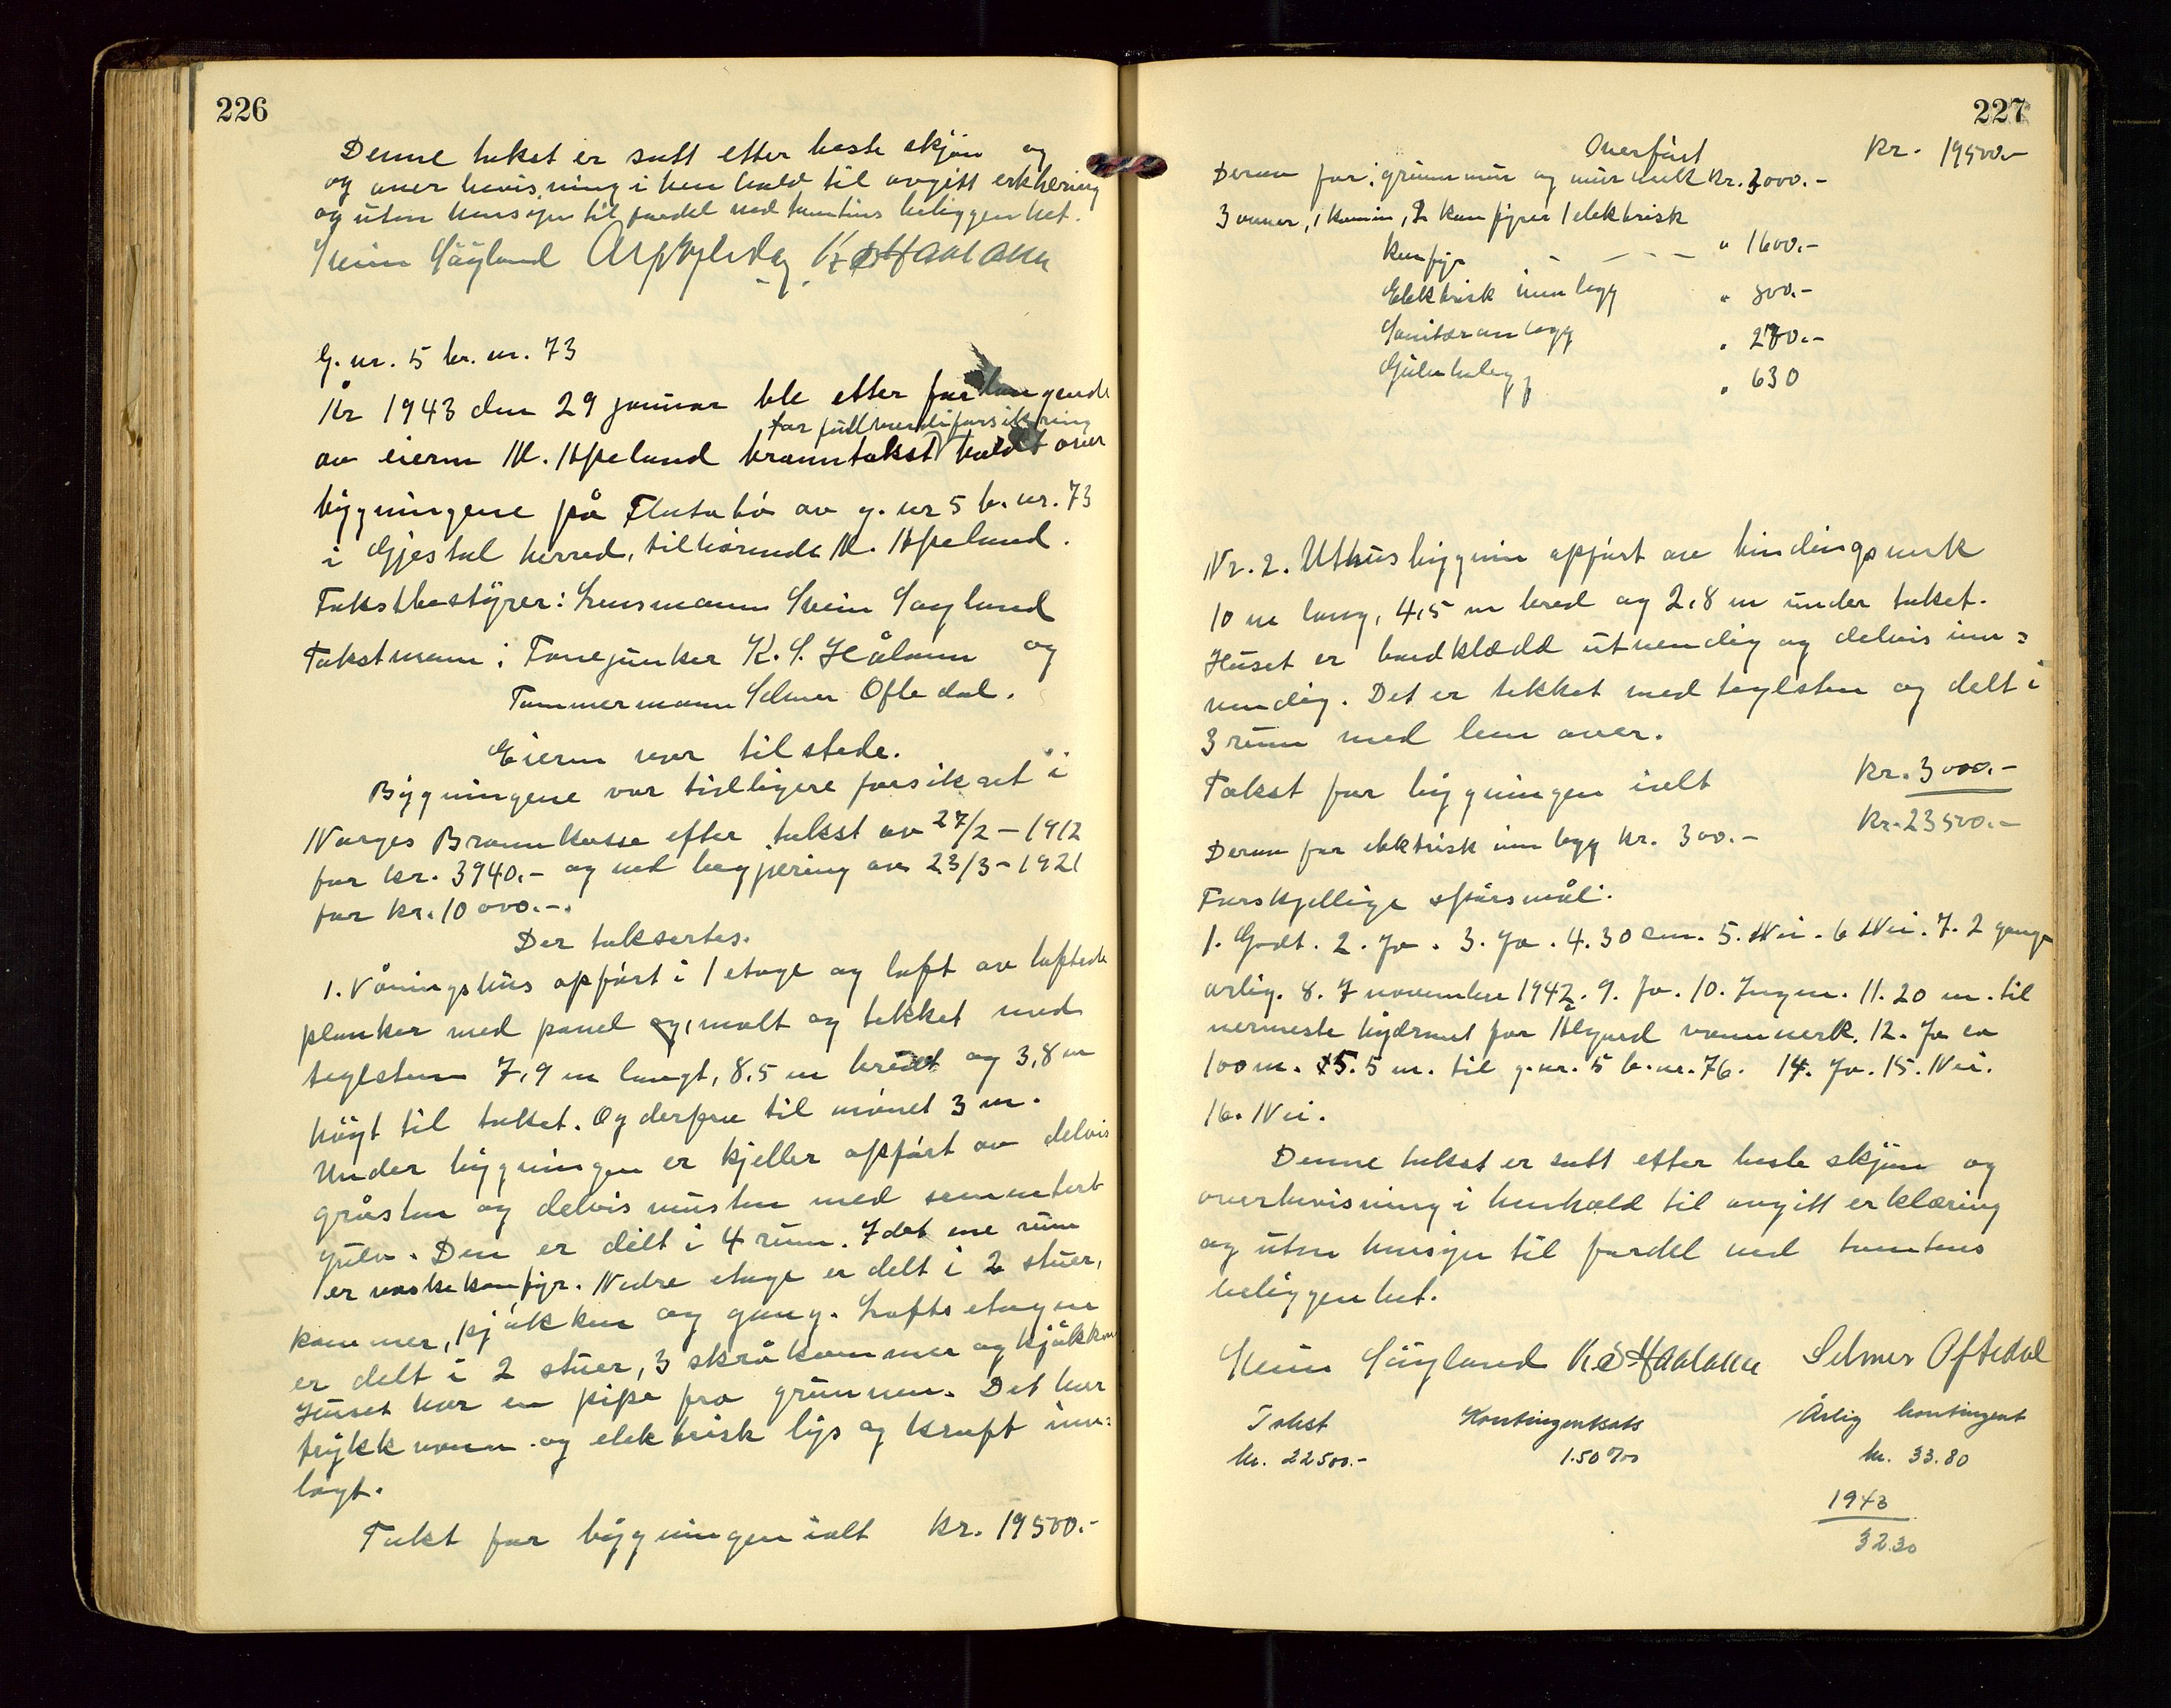 226
Denne takst er satt etter beste skjøn og
og overbevisning i henhold til avgitt erklæring
og uten hensyn til fordel ved tomtens beliggenhet.
Svein Søyland K S Haaland
G. nr. 5 br. nr. 73
År 1943 den 29 januar ble etter forlangende
for fullverdiforsikring
av eieren M. Apeland branntakst holdt over
bygningene på Flutabø av g. nr 5 b. nr. 73
i Gjestal herred, tilhørende M. Apeland.
Takstbestyrer: Lensmann Svein Søyland
Takstmenn: Fanejunker K. S. Håland og
Tømmermann Selmer Oftedal.
Eieren var tilstede.
Bygningene var tidligere forsikret i
Norges Brannkasse efter takst av 27/2 - 1912
for kr. 3940.- og ved begjæring av 23/3 - 1921
for kr. 10 000.-.
Der taksertes.
1. Våningshus opført i 1 etage og loft av loftede
planker med panel og, malt og tekket med
teglsten 7,9 m langt, 8,5 m bredt og 3,8 m
høgt til taket. Og derfra til mønet 3 m.
Under bygningen er kjeller opført av delvis
gråsten og delvis mursten med sementert
gulv. Den er delt i 4 rum. I det ene rum
er vaskekomfyr. Nedre etage er delt i 2 stuer,
kammer, kjøkken og gang. Loftsetagen
er delt i 2 stuer, 3 skråkammer og kjøkken
Huset har en pipe fra grunnen. Det har
trykkvann og elektrisk lys og kraft inn=
lagt.
Takt for bygningen ialt kr. 19500.-
227
Overført kr. 19500.-
Derav for: grunnmur og murverk kr. 3000.-
3 ovner, 1 kamin, 2 komfyrer 1 elektrisk
komfyr - - - - " 1600.-
Elektrisk innlegg " 800.-
Sanitæranlegg " 270.-
Gulvbelegg " 630
Nr. 2. Uthusbygnin opført av bindingsverk
10 m lang, 4,5 m bred og 2,8 m under taket.
Huset er bordklædd utvendig og delvis inn=
vendig. Det er tekket med teglsten og delt i
3 rum med lem over.
Takst for bygningen ialt kr. 3000.-
Kr. 23500.-
Derav for elektrisk innlegg kr. 300.-
Forskjellige spørsmål:
1. Godt. 2. Ja. 3. Ja. 4. 30 cm. 5. Nei. 6 Nei. 7. 2 gange
årlig. 8. 7 november 1942. 9. Ja. 10. Ingen. 11. 20 m. til
nermeste hydrant for Ålgård vannverk. 12. Ja ca
100 m. 5. 5 m. til g.nr. 5 b.nr. 76. 14. Ja. 15. Nei.
16. Nei.
Denne takst er satt etter beste skjøn og
overbevisning i henhold til avgitt erklæring
og uten hensyn til fordel ved tomtens
beliggenhet.
Svein Søyland K S Haaland Selmer Oftedal
Takst Kontingentsats Årlig kontingent
kr. 22500.- 1.50 ‰ kr. 33.80
1943
32.30